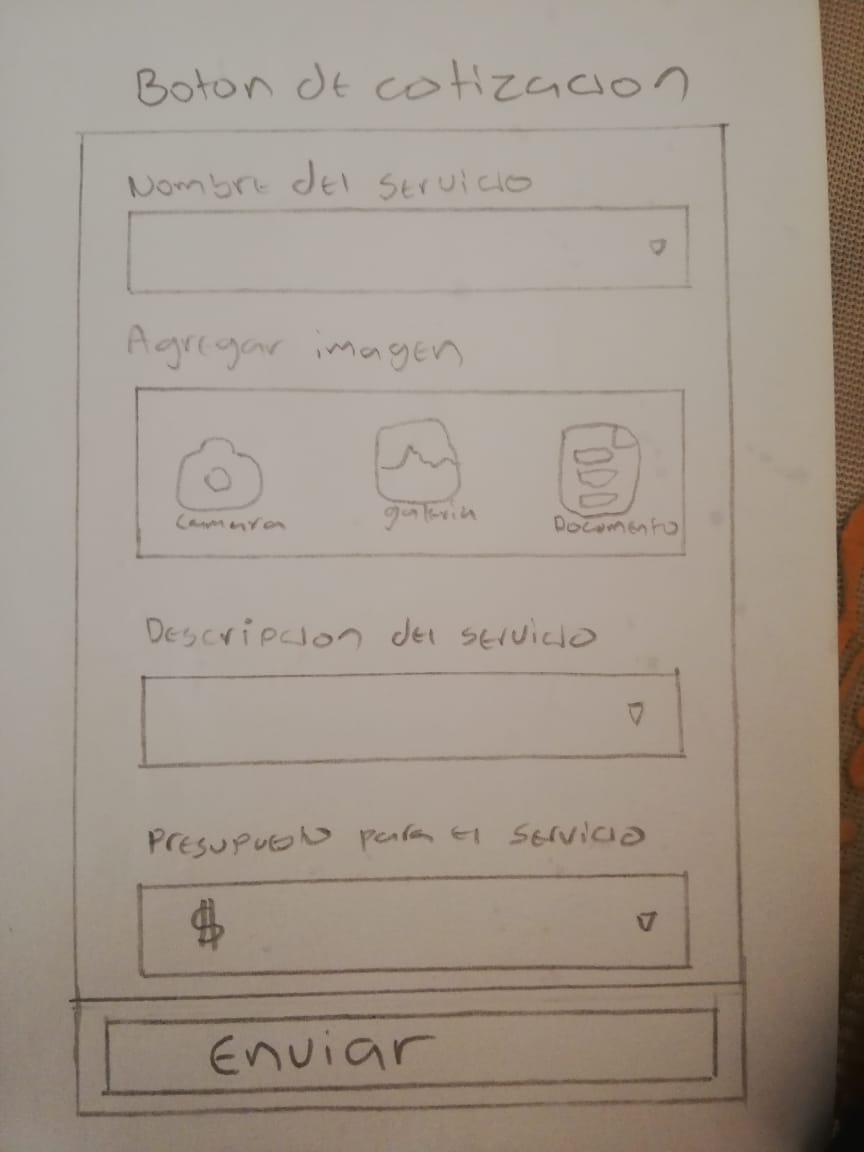 Boton de cotizacion
Nombre del servicio
Agregar imagen
camara galeria Documento
Descripcion del servicio
Presupuesto para el servicio
$
Enviar